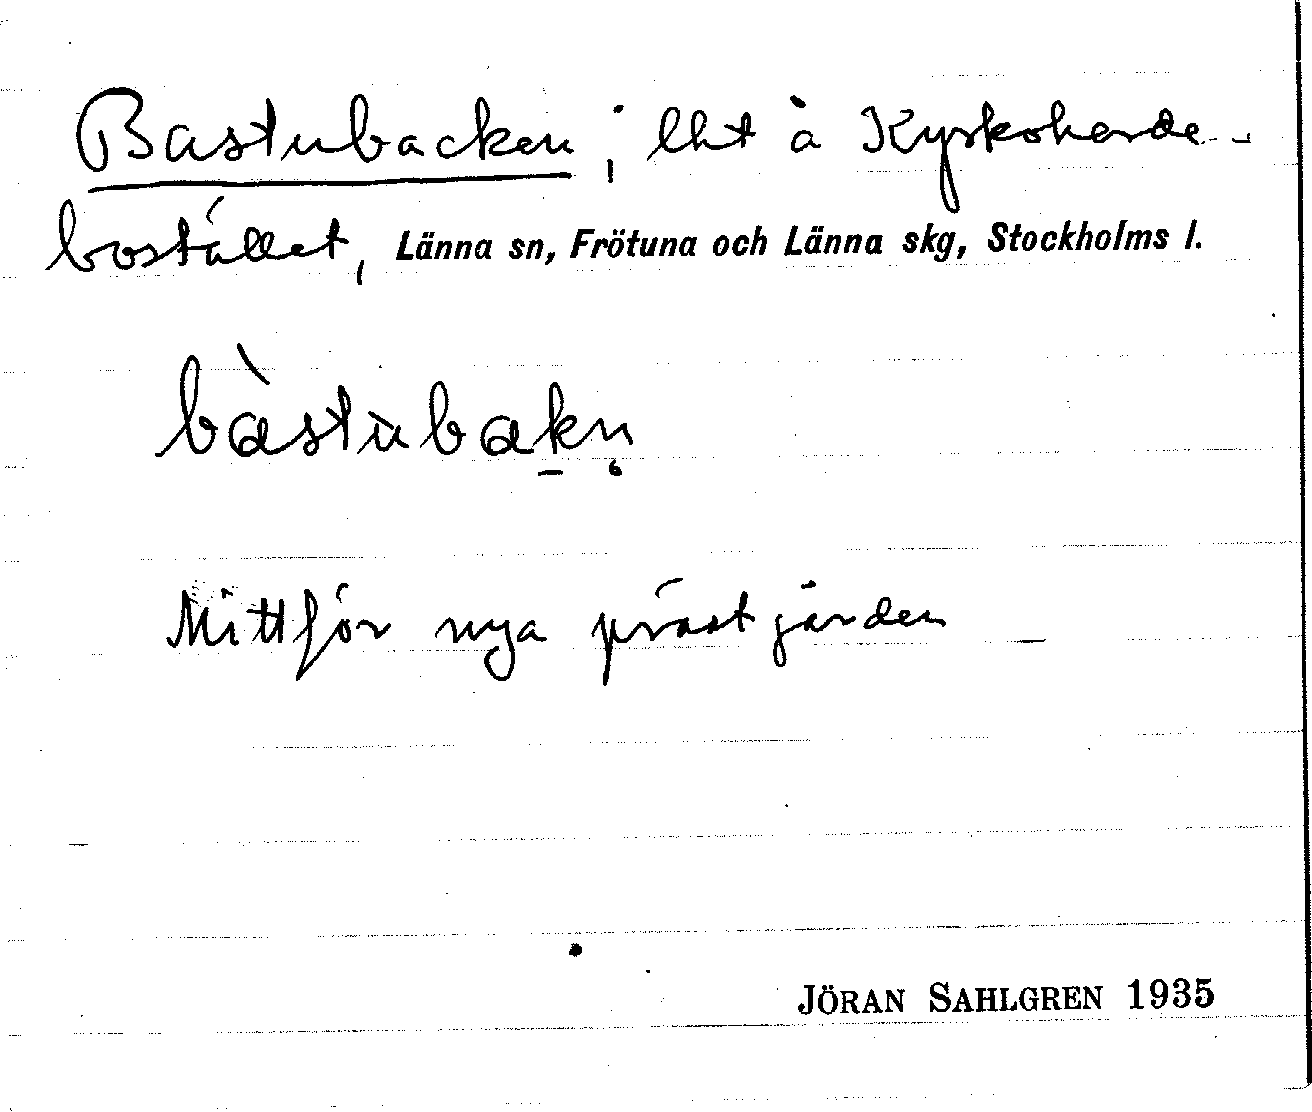 Bastubacken; lht å Kyrkoherde-
bostället, Länna sn, Frötuna och Länna skg, Stockholms l.
bàstùbakn̥
Mittför nya prästgården
JÖRAN SAHLGREN 1935